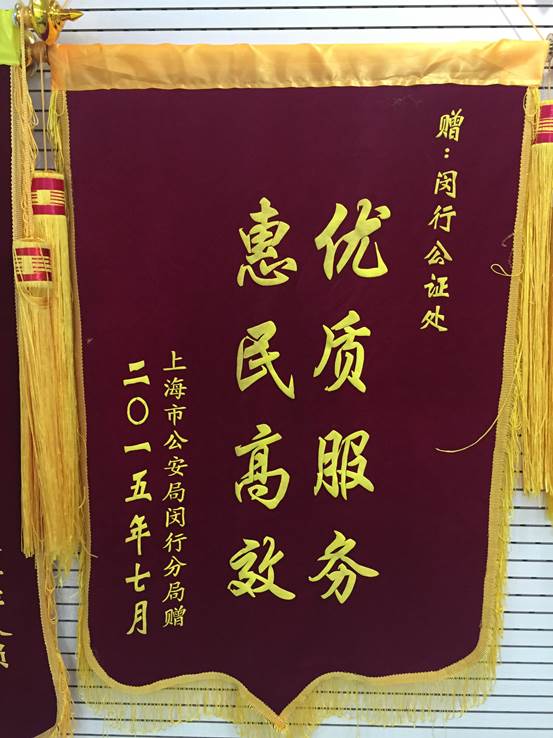 赠：闵行公证处
优质服务
惠民高效
上海市公安局闵行分局赠
二〇一五年七月